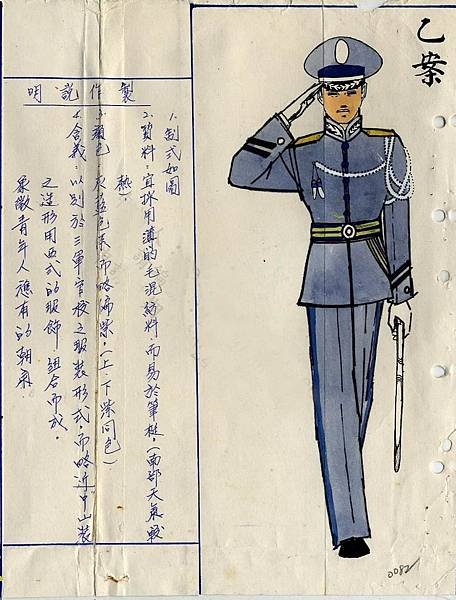 乙案
製作說明
1.制式如圖
2.質料:宜採用薄的毛混紡料,而易於筆挺。(南部天氣較
熱。
3.顏色:灰藍色系而略偏紫。(上、下裝同色)
4.含義:以別於三軍官校之服裝形式,而略近"中山裝
之造形用西式的服飾,組合而成。
象徵青年人應有的朝氣。
0082